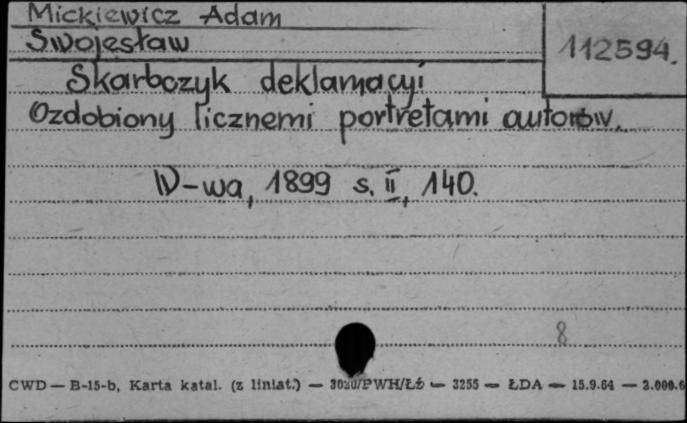 Mickiewicz Adam
Swojesław
112594.
Skarbczyk deklamacyi
Ozdobiony licznemi portretami autorów.
W-wa, 1899 s. II, 140.
8
CWD — B-15-b, Karta katal. (z liniat.) — 3030/PWH/Łź — 3255 — ŁDA — 15.9.64 — 2.000.0